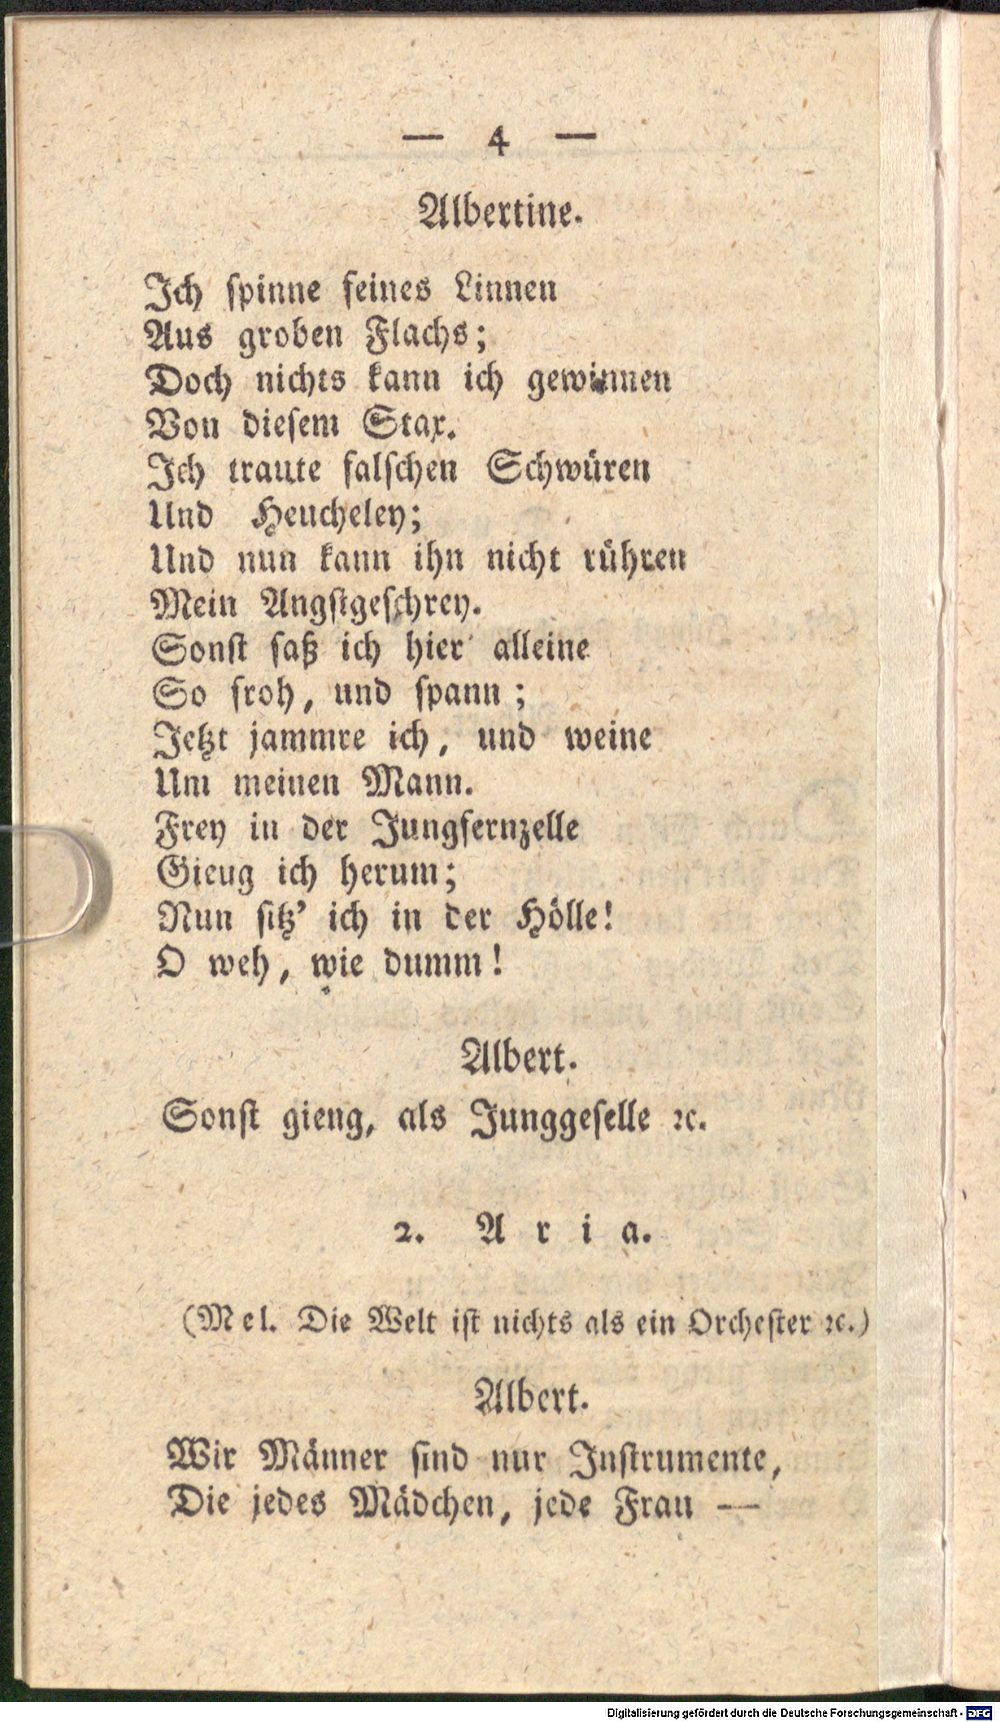 — 4 —
Albertine.
Ich ſpinne feines Linnen
Aus groben Flachs;
Doch nichts kann ich gewinnen
Von dieſem Stax.
Ich traute falſchen Schwüren
Und Heucheley;
Und nun kann ihn nicht rühren
Mein Angſtgeſchrey.
Sonſt ſaß ich hier alleine
So froh, und ſpann;
Jetzt jammre ich, und weine
Um meinen Mann.
Frey in der Jungfernzelle
Gieug ich herum;
Nun ſitz' ich in der Hölle!
O weh, wie dumm!
Albert.
Sonſt gieng, als Junggeſelle ꝛc.
2. Aria.
(Mel. Die Welt iſt nichts als ein Orcheſter ꝛc.)
Albert.
Wir Männer ſind nur Inſtrumente,
Die jedes Mädchen, jede Frau —
Digitalisierung gefördert durch die Deutsche Forschungsgemeinschaft - DFG